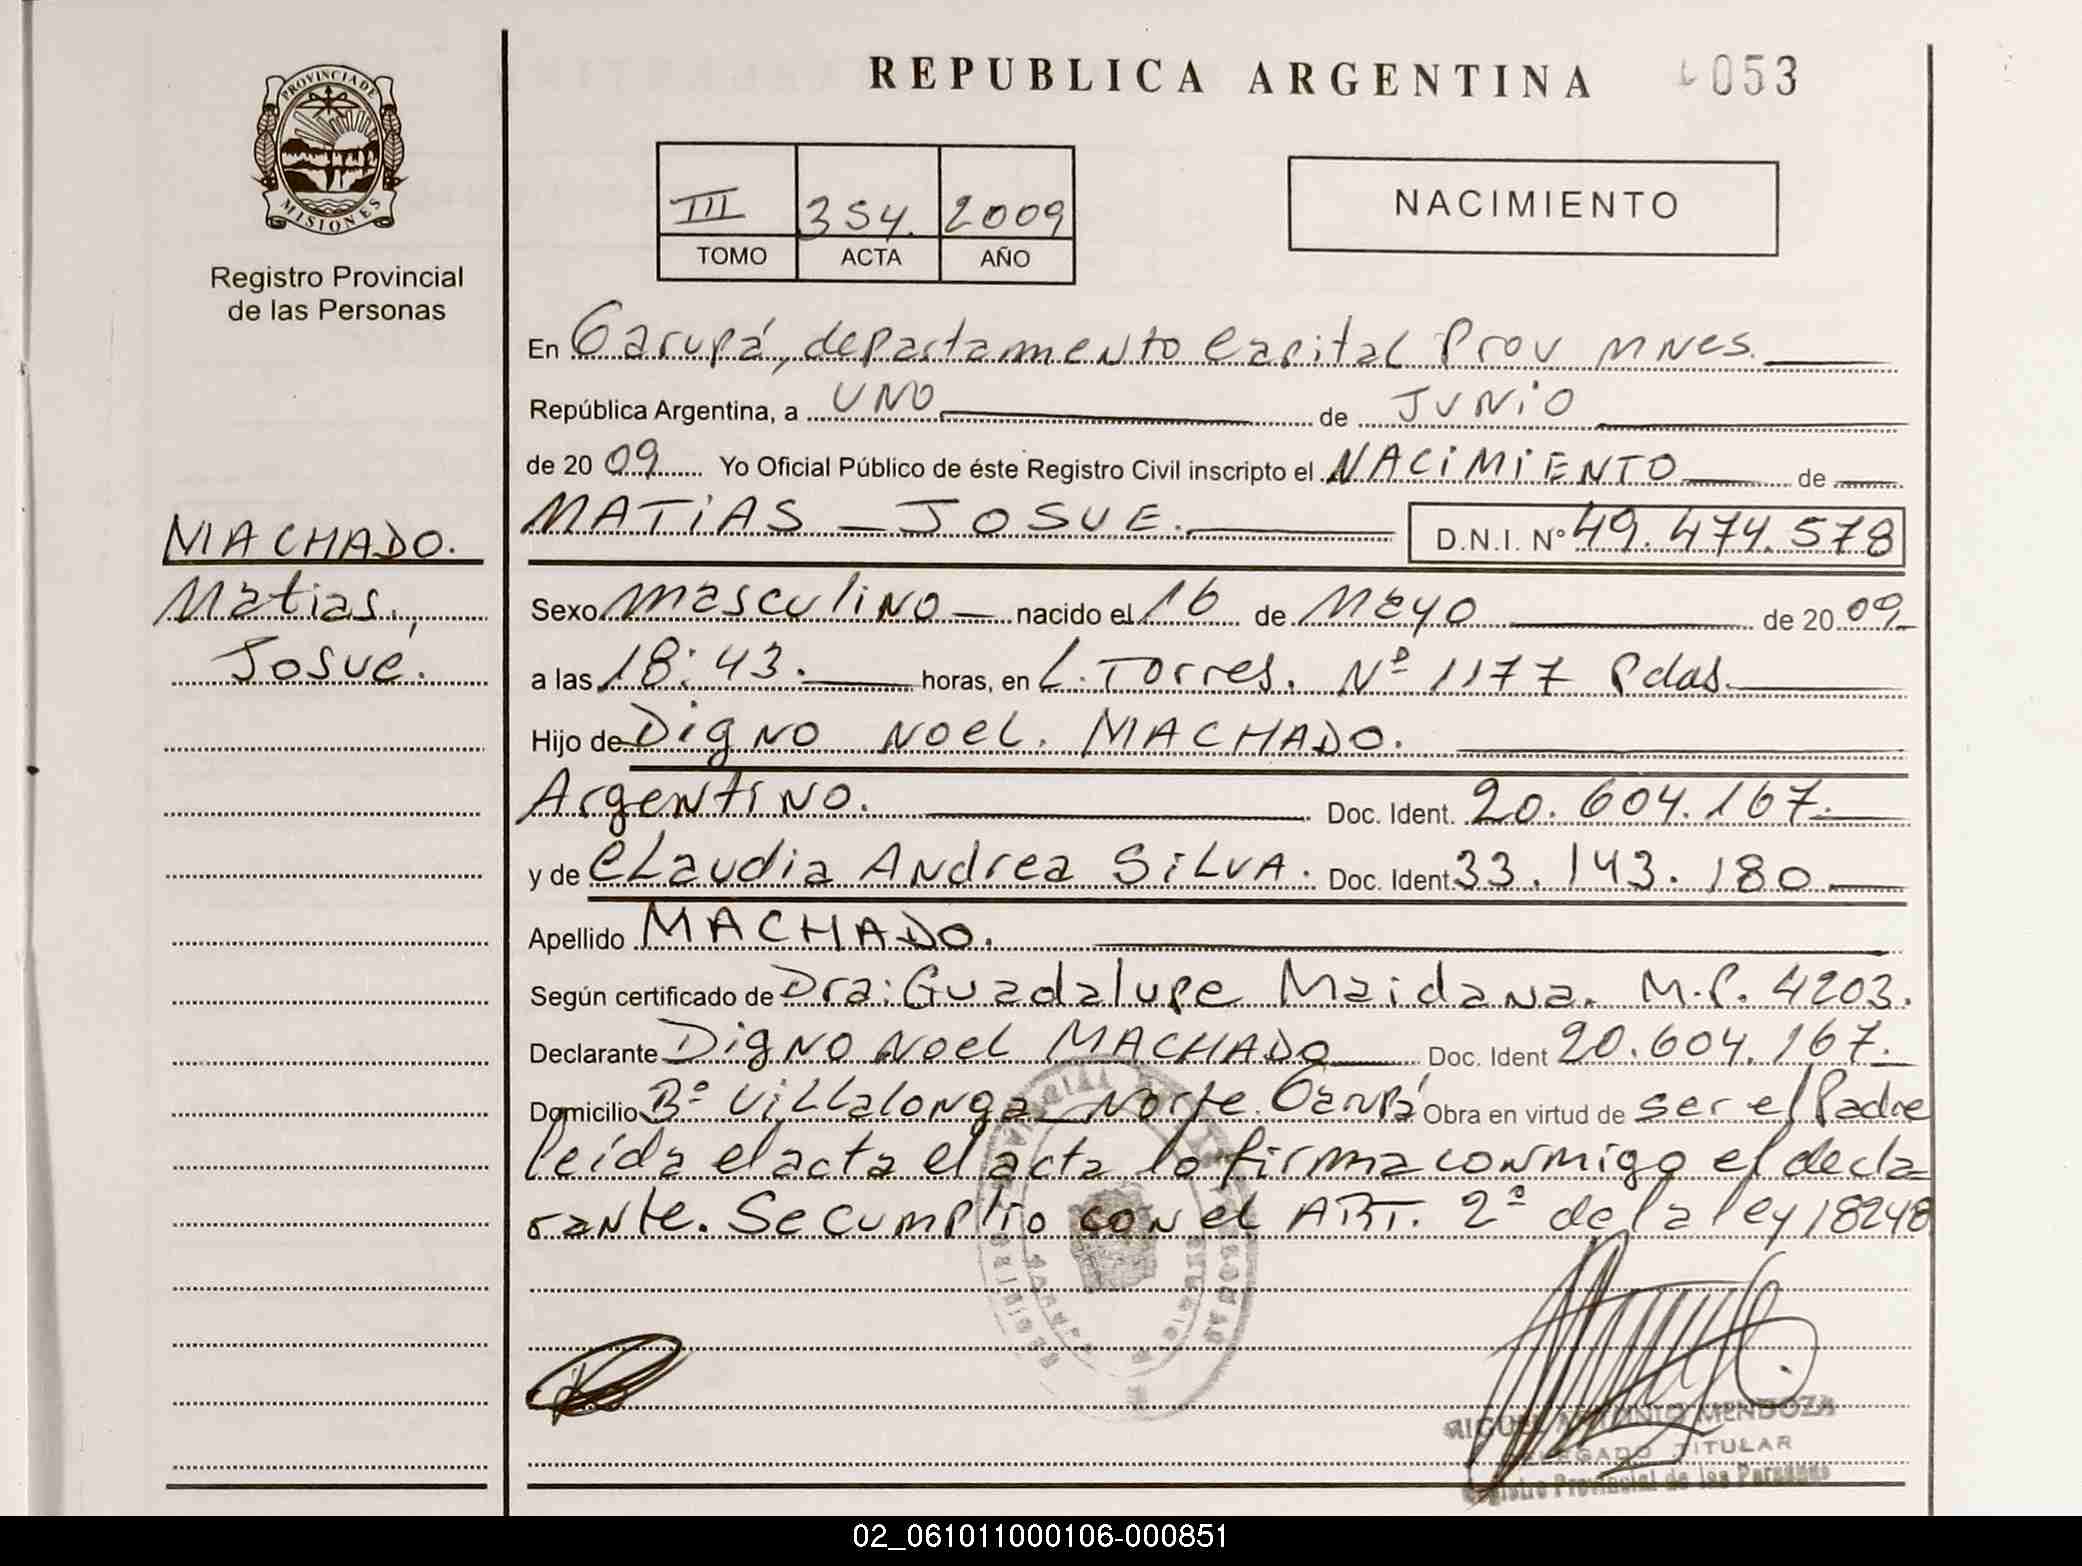 REPUBLICA ARGENTINA
053
PROVINCIA DE
MISIONES
Registro Provincial
de las Personas
III 354. 2009
TOMO ACTA AÑO
NACIMIENTO
En Garupá, departamento Capital Prov Mnes.
República Argentina, a UNO de JUNIO
de 2009 Yo Oficial Público de éste Registro Civil inscripto el NACIMIENTO de
MATIAS - JOSUE. D.N.I. Nº 49.474.578
MACHADO.
Matias,
Josué.
Sexo masculino nacido el 16 de Mayo de 2009
a las 18:43. horas, en L. Torres. Nº 1177 Pdas.
Hijo de Digno Noel. MACHADO.
Argentino. Doc. Ident. 20.604.167.
y de Claudia Andrea SILVA. Doc. Ident. 33.143.180
Apellido MACHADO.
Según certificado de Dra: Guadalupe Maidana. M.P. 4203.
Declarante Digno Noel MACHADO Doc. Ident 20.604.167.
Domicilio Bº Villalonga Norte. Garupá Obra en virtud de ser el Padre
leída el acta el acta la firma conmigo el decla
rante. Se cumplio con el ART. 2º de la ley 18248
MIGUEL ANTONIO MENDOZA
DELEGADO TITULAR
Registro Provincial de las Personas
02_061011000106-000851